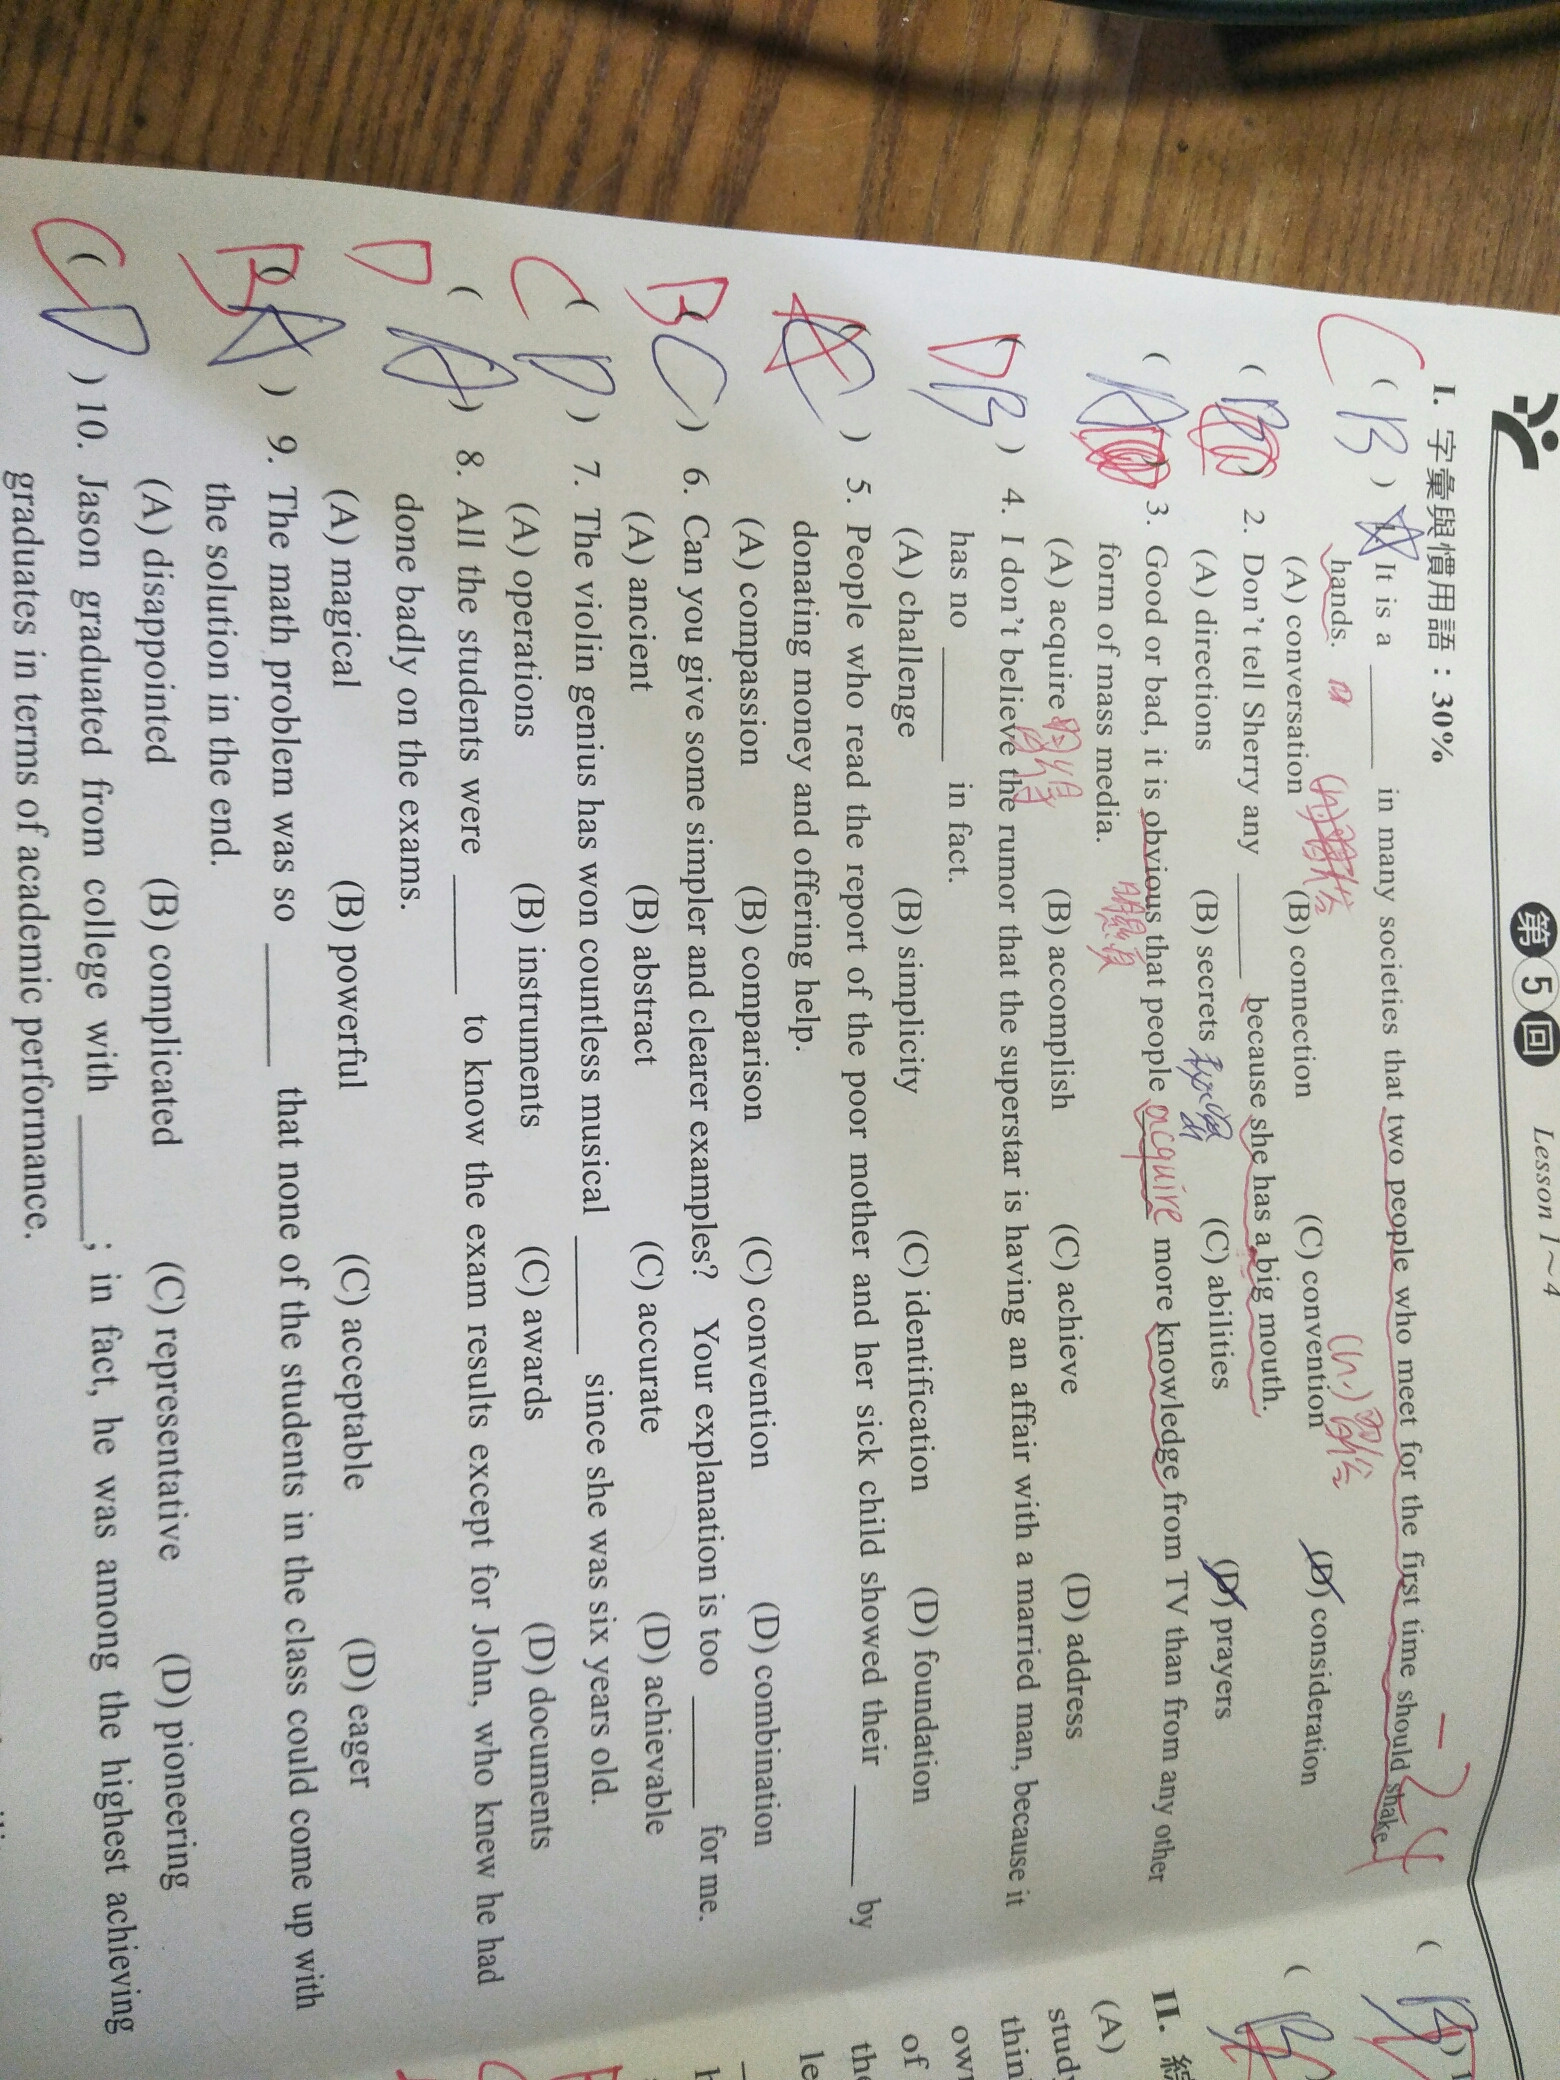 第5回 Lesson 1~4
I. 字彙與慣用語：30%
C ( B ) ☆ It is a ______ in many societies that two people who meet for the first time should shake
hands.
(A) conversation (B) connection (C) convention (D) consideration
( B ) 2. Don't tell Sherry any ______ because she has a big mouth.
(A) directions (B) secrets (C) abilities (D) prayers
( A ) 3. Good or bad, it is obvious that people acquire more knowledge from TV than from any other
form of mass media. 明顯
(A) acquire 習得 (B) accomplish (C) achieve (D) address
D ( B ) 4. I don't believe the rumor that the superstar is having an affair with a married man, because it
has no ______ in fact.
(A) challenge (B) simplicity (C) identification (D) foundation
A ( C ) 5. People who read the report of the poor mother and her sick child showed their ______ by
donating money and offering help.
(A) compassion (B) comparison (C) convention (D) combination
B ( C ) 6. Can you give some simpler and clearer examples? Your explanation is too ______ for me.
(A) ancient (B) abstract (C) accurate (D) achievable
C ( D ) 7. The violin genius has won countless musical ______ since she was six years old.
(A) operations (B) instruments (C) awards (D) documents
D ( A ) 8. All the students were ______ to know the exam results except for John, who knew he had
done badly on the exams.
(A) magical (B) powerful (C) acceptable (D) eager
B ( A ) 9. The math problem was so ______ that none of the students in the class could come up with
the solution in the end.
(A) disappointed (B) complicated (C) representative (D) pioneering
C ( D ) 10. Jason graduated from college with ______; in fact, he was among the highest achieving
graduates in terms of academic performance.
( B )
( B
II.
(A)
study
own
of